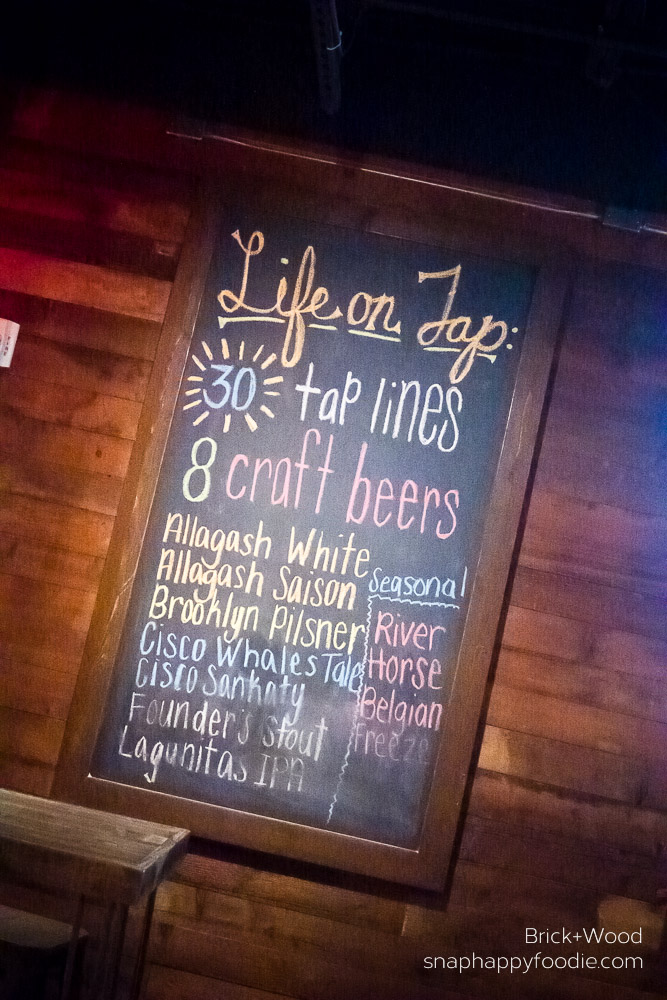 Life on Tap:
30 tap lines
8 craft beers
Allagash White
Allagash Saison
Brooklyn Pilsner
Cisco Whales Tale
Cisco Sankaty
Founder's Stout
Lagunitas IPA
Seasonal
River
Horse
Belgian
Freeze
Brick+Wood
snaphappyfoodie.com